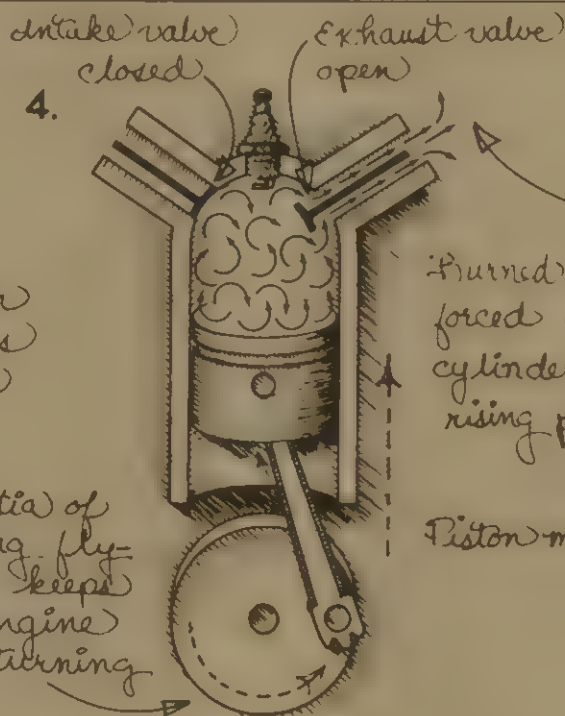 Intake valve
closed
Exhaust valve
open
4.
Burned
forced
cylinde
rising p
tia of
ng fly-
keeps
ngine
turning
Piston m